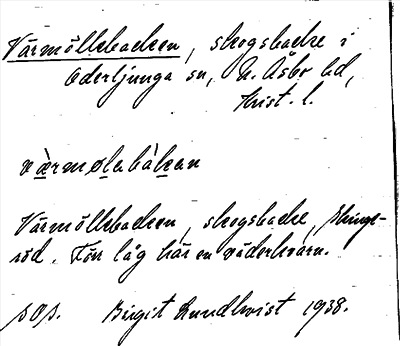 Värmöllebacken, skogsbacke i
Oderljunga sn, N. Åsbo hd,
Krist. l.
værmølebàkan
Värmöllebacken, skogsbacke, Skinge-
röd. Förr låg här en väderkvarn.
sop. Birgit Lundkvist 1938.